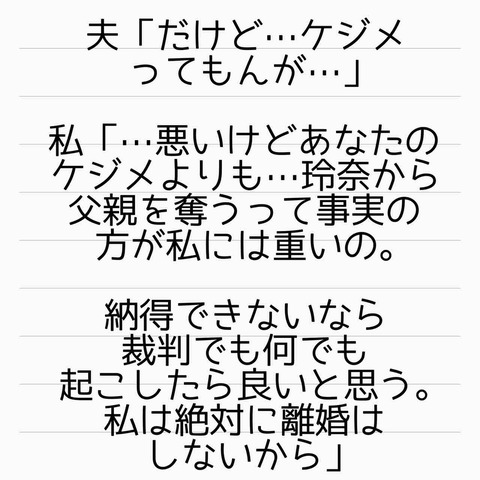 夫「だけど…ケジメ
ってもんが…」
私「…悪いけどあなたの
ケジメよりも…玲奈から
父親を奪うって事実の
方が私には重いの。
納得できないなら
裁判でも何でも
起こしたら良いと思う。
私は絶対に離婚は
しないから」